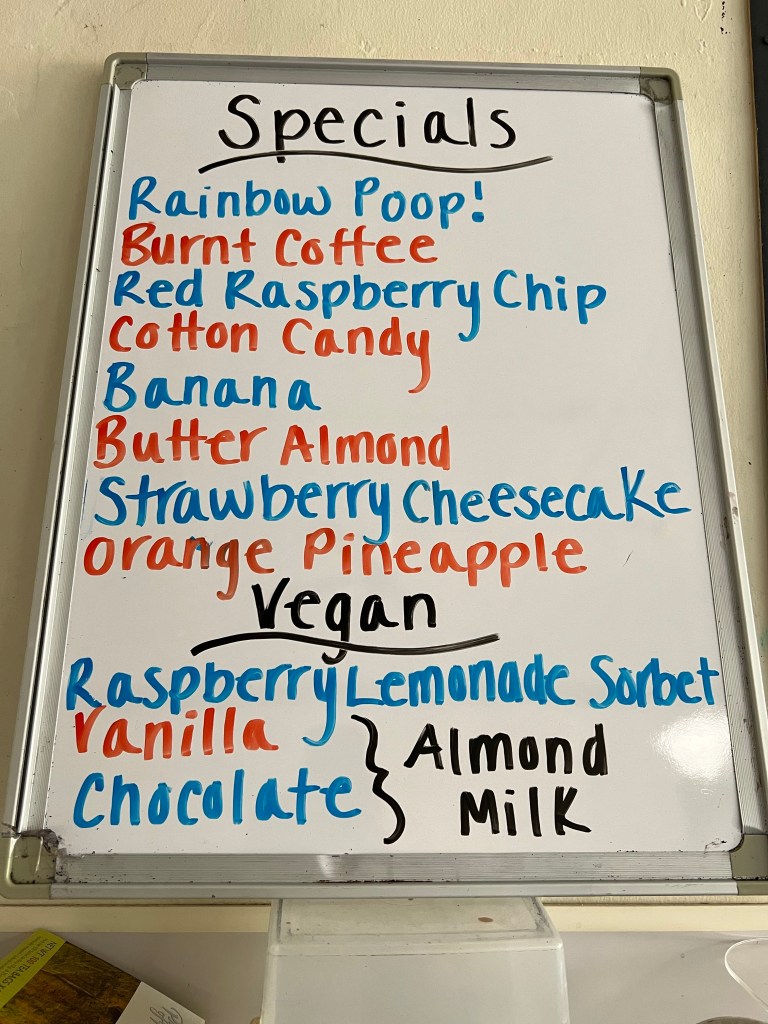 Specials
Rainbow Poop!
Burnt Coffee
Red Raspberry Chip
Cotton Candy
Banana
Butter Almond
Strawberry Cheesecake
Orange Pineapple
Vegan
Raspberry Lemonade Sorbet
Vanilla
Chocolate
} Almond
Milk
100 TEA BAGS